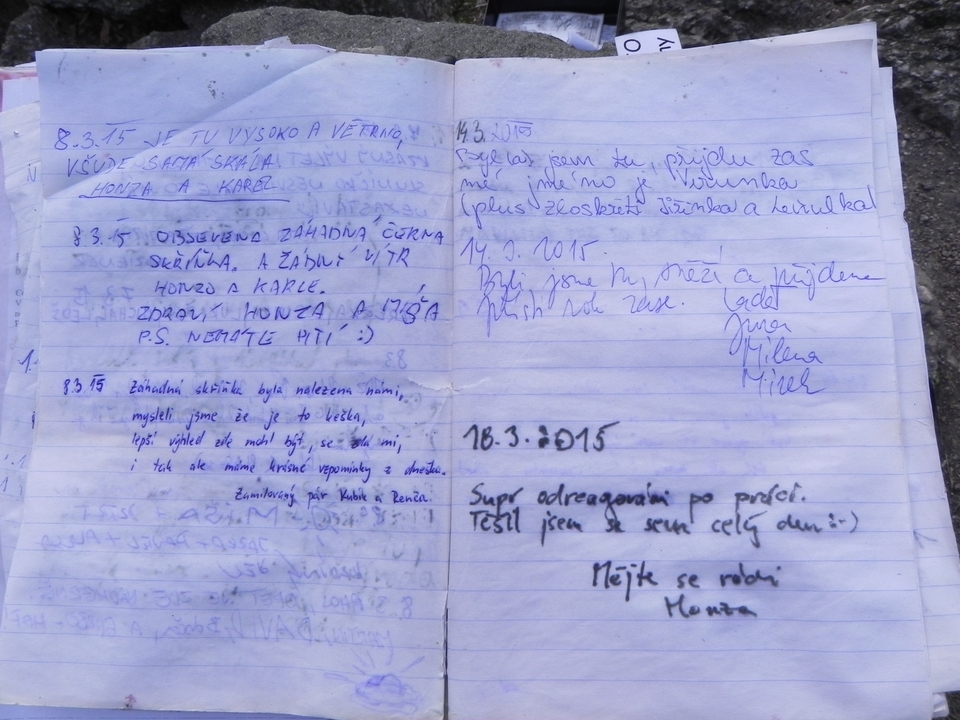 8.3.15 JE TU VYSOKO A VĚTRNO,
VŠUDE SAMÁ SKÁLA.
HONZA A KAREL
8.3.15 OBJEVENA ZÁHADNÁ ČERNÁ
SKŘÍŇKA. A ŽÁDNÝ VÍTR
HONZO A KARLE.
ZDRAVÍ HONZA A
P.S. NEMÁTE PITÍ :)
8.3.15 Záhadná skříňka byla nalezena námi,
mysleli jsme že je to keška,
lepší výhled zde mohl být, se zdá mi,
i tak ale máme krásné vzpomínky z dneška.
Zamilovaný pár Kubík a Renča.
14.3.2015
Byla jsem tu, přijdu zas
mé jméno je Verunka
(plus zloskřeti Jiřinka a
14.3.2015.
Byli jsme tu svěží a přijdeme
příští rok zase. Láďa
Jura
Milena
Mirek
18.3.2015
Supr odreagování po práci.
Těšil jsem se sem celý den :-)
Mějte se rádi
Honza